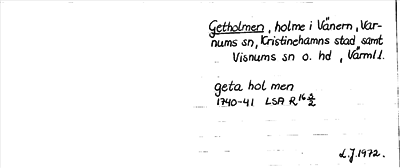 Getholmen, holme i Vänern, Var-
nums sn, Kristinehamns stad samt
Visnums sn o. hd, Värml.
geta hol men
1740-41 LSA R 16 3/2
L.J. 1972.